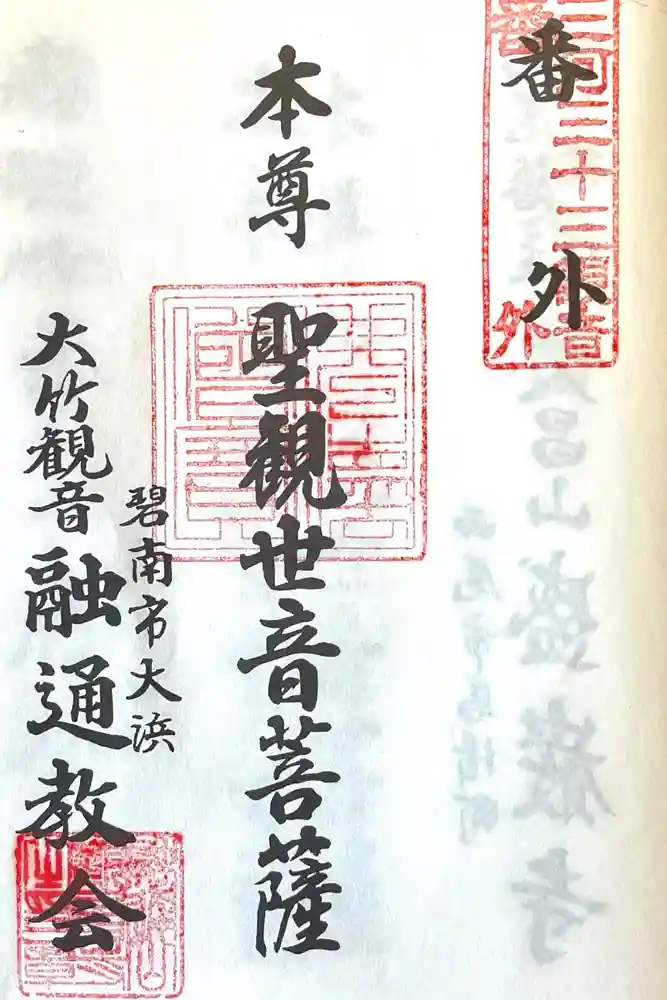 番外
三河三十三観音
番外
本尊 聖観世音菩薩
碧南市大浜
大竹観音 融通教会